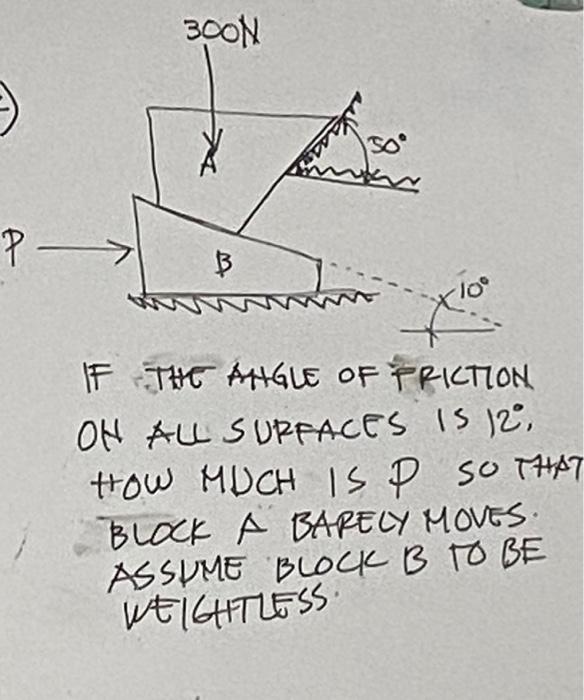 300N
50°
A
P
B
10°
IF THE ANGLE OF FRICTION
ON ALL SURFACES IS 12°,
HOW MUCH IS P SO THAT
BLOCK A BARELY MOVES.
ASSUME BLOCK B TO BE
WEIGHTLESS.